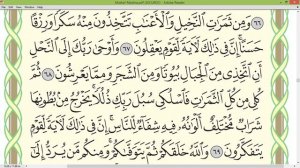 ٦٦ وَمِن ثَمَرَٰتِ ٱلنَّخِيلِ وَٱلْأَعْنَٰبِ تَتَّخِذُونَ مِنْهُ سَكَرًا وَرِزْقًا
حَسَنًا إِنَّ فِى ذَٰلِكَ لَءَايَةً لِّقَوْمٍ يَعْقِلُونَ ٦٧ وَأَوْحَىٰ رَبُّكَ إِلَى ٱلنَّحْلِ
أَنِ ٱتَّخِذِى مِنَ ٱلْجِبَالِ بُيُوتًا وَمِنَ ٱلشَّجَرِ وَمِمَّا يَعْرِشُونَ ٦٨ ثُمَّ
كُلِى مِن كُلِّ ٱلثَّمَرَٰتِ فَٱسْلُكِى سُبُلَ رَبِّكِ ذُلُلًا يَخْرُجُ مِنۢ بُطُونِهَا
شَرَابٌ مُّخْتَلِفٌ أَلْوَٰنُهُۥ فِيهِ شِفَآءٌ لِّلنَّاسِ إِنَّ فِى ذَٰلِكَ لَءَايَةً لِّقَوْمٍ
يَتَفَكَّرُونَ ٦٩ وَٱللَّهُ خَلَقَكُمْ ثُمَّ يَتَوَفَّىٰكُمْ وَمِنكُم مَّن يُرَدُّ إِلَىٰٓ